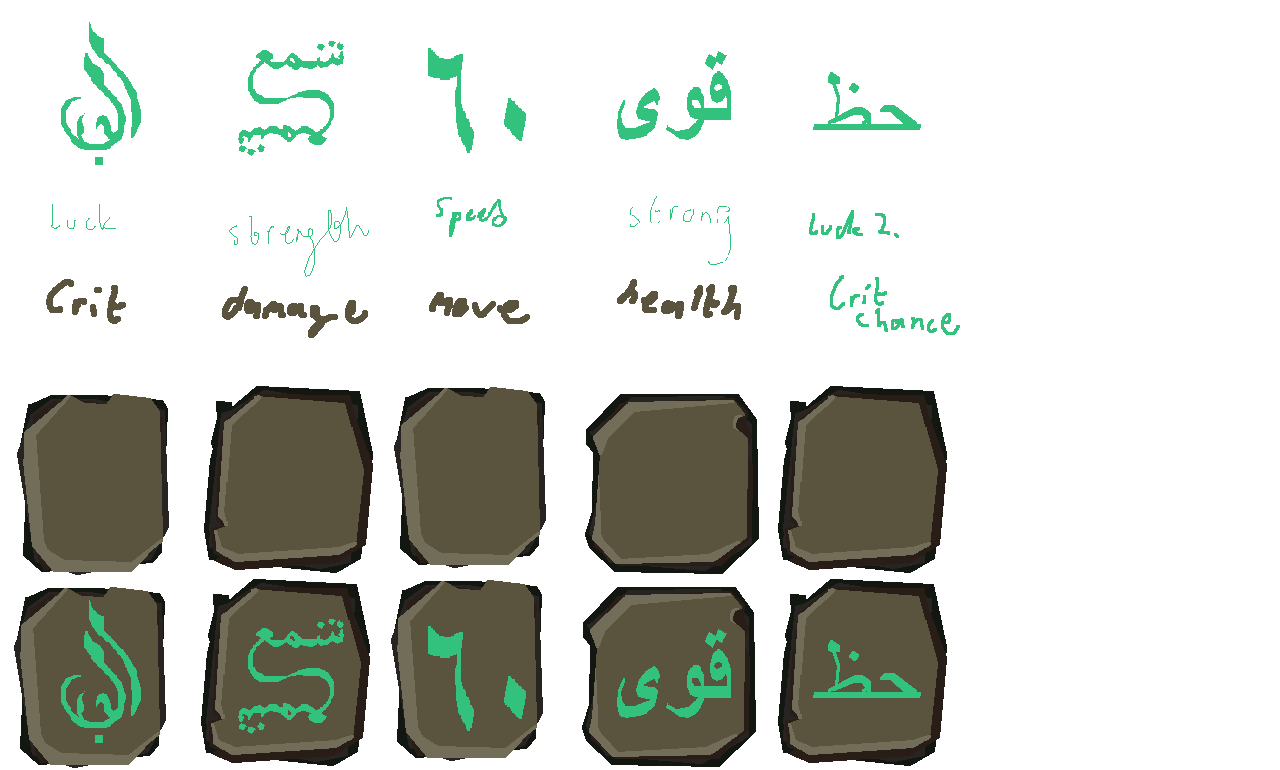 ٦٠ قوى حظ
luck strength speed strong luck 2.
Crit damage move health Crit chance
٦٠ قوى حظ